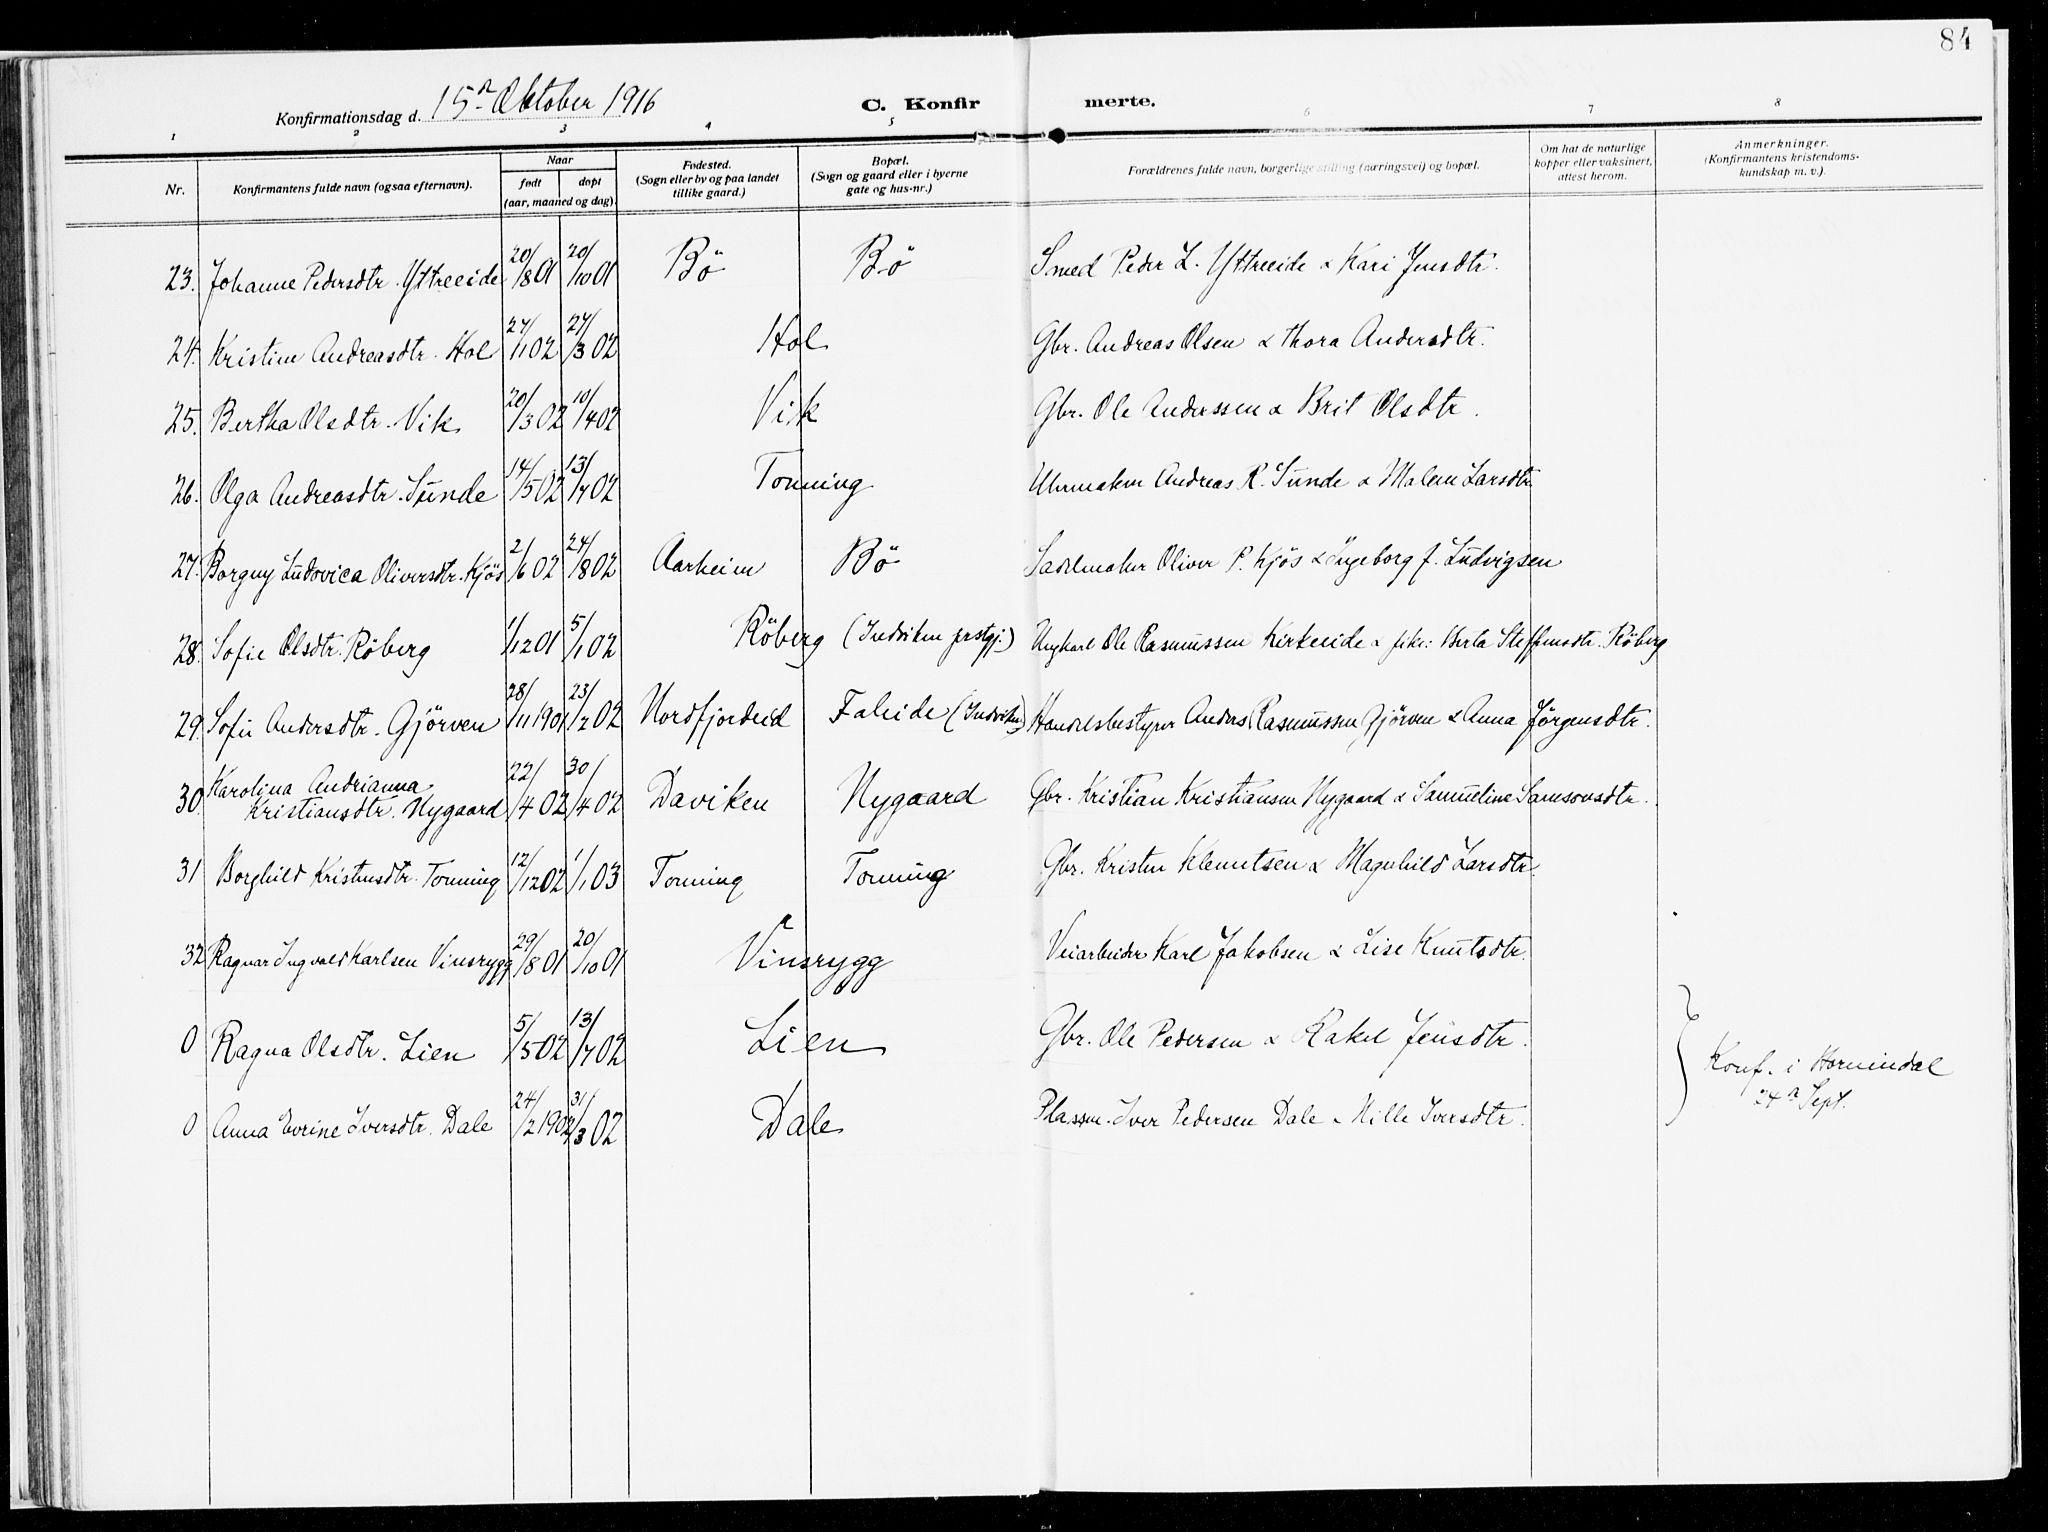 84
Konfirmationsdag d. 15de Oktober 1916 C. Konfir merte.
1 2 3 4 5 6 7 8
Nr. Konfirmantens fulde navn (ogsaa efternavn). Naar født døpt (aar, maaned og dag). Fødested. (Sogn eller by og paa landet tillike gaard.) Bopæl. (Sogn og gaard eller i byerne gate og hus-nr.) Forældrenes fulde navn, borgerlige stilling (næringsvei) og bopæl. Om hat de naturlige kopper eller vaksinert, attest herom. Anmerkninger. (Konfirmantens kristendoms-kundskap m. v.).
23. Johanne Pedersdtr. Yttreeide 20/8 01 20/10 01 Bö Bö Smed Peder L. Yttreeide & Kari Jensdtr.
24. Kristine Andreasdtr. Hol 27/1 02 27/3 02 Hol Gbr. Andreas Olsen & Thora Andersdtr.
25. Bertha Olsdtr. Vik 20/3 02 10/4 02 Vik Gbr. Ole Anderssen & Brit Olsdtr.
26. Olga Andreasdtr. Sunde 14/5 02 13/7 02 Tonning Uhrmaker Andreas R. Sunde & Malene Larsdtr.
27. Borgny Ludovica Oliversdtr. Kjös 2/6 02 24/8 02 Aarheim Bö Sadelmaker Oliver P. Kjös & Ingeborg f. Ludvigsen
28. Sofie Olsdtr. Röberg 1/12 01 5/1 02 Röberg (Indviken prstgj.) Ungkarl Ole Rasmussen Kirkeeide & pike: Berta Steffensdtr. Röberg
29. Sofie Andersdtr. Gjörven 28/11 1901 23/2 02 Nordfjordeid Faleide (Indviken) Handelsbestyrer Anders Rasmussen Gjörven & Anna Jörgensdtr.
30. Karolina Andrianna
Kristiansdtr. Nygaard 22/4 02 30/4 02 Daviken Nygaard Gbr. Kristian Kristiansen Nygaard & Samueline Samsonsdtr.
31 Borghild Kristensdtr. Tonning 12/12 02 1/1 03 Tonning Tonning Gbr. Kristen Klemetsen & Magnhild Larsdtr.
32 Ragnar Ingvald Karlsen Vinsrygg 29/8 01 20/10 01 Vinsrygg Veiarbeider Karl Jakobsen & Lise Knutsdtr.
0 Ragna Olsdtr. Lien 5/5 02 13/7 02 Lien Gbr. Ole Pedersen & Rakel Jensdtr.
Konf. i Hornindal
24de Sept.
0 Anna Evrine Iversdtr. Dale 24/2 1902 31/3 02 Dale Plassm. Iver Pedersen Dale & Nille Iversdtr.